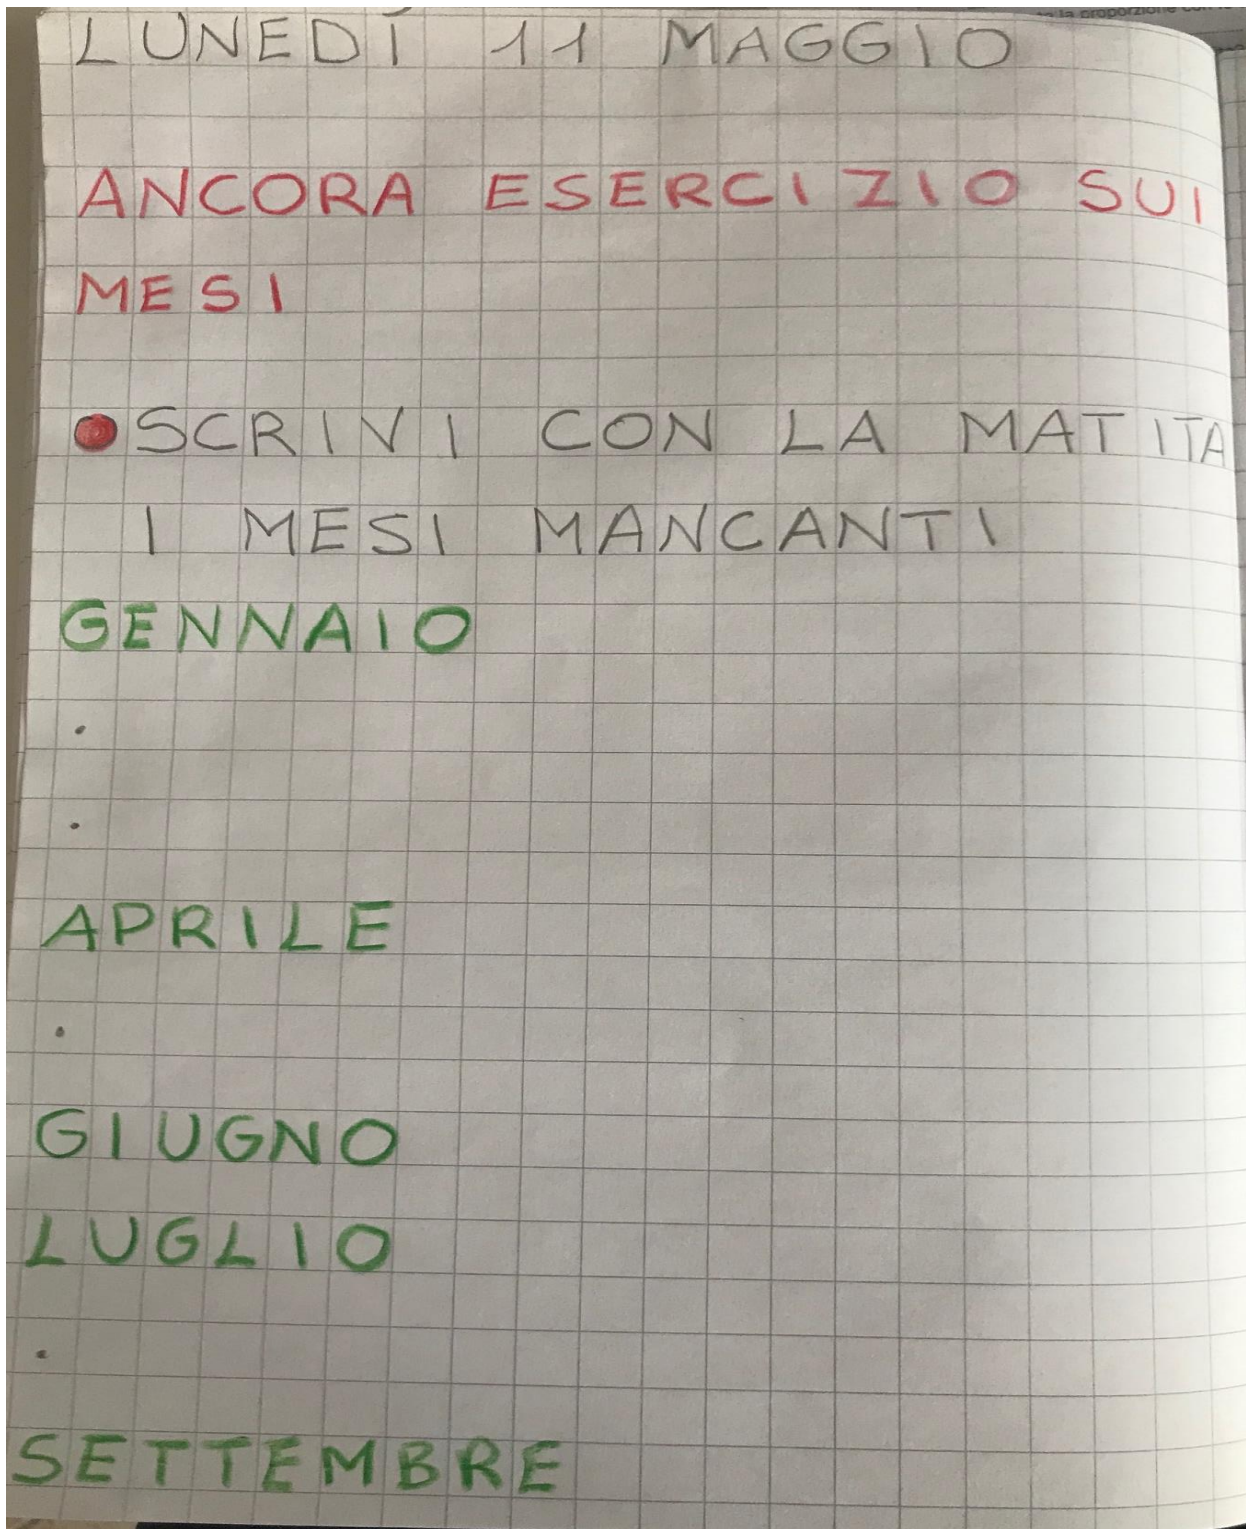 LUNEDÌ 11 MAGGIO
ANCORA ESERCIZIO SUI
MESI
SCRIVI CON LA MATITA
I MESI MANCANTI
GENNAIO
.
.
APRILE
.
GIUGNO
LUGLIO
.
SETTEMBRE